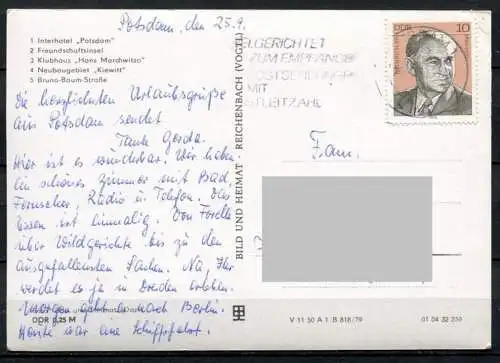 Potsdam, den 25.9.
1 Interhotel „Potsdam"
2 Freundschaftsinsel
3 Klubhaus „Hans Marchwitza"
4 Neubaugebiet „Kiewitt"
5 Bruno-Baum-Straße
Die herzlichsten Urlaubsgrüße
aus Potsdam sendet
Tante Gerda.
Hier ist es wunderbar. Wir haben
ein schönes Zimmer mit Bad,
Fernseher, Radio u. Telefon. Das
Essen ist einmalig. Von Forelle
über Wildgerichte bis zu den
ausgefallensten Sachen. Na, Ihr
werdet es ja in Dresden erleben.
Morgen geht es nach Berlin.
Heute war eine Schiffsfahrt.
DDR 0,25 M
BILD UND HEIMAT · REICHENBACH (VOGTL)
GERICHTET
ZUM EMPFANG
POSTSENDUNGEN
MIT
POSTLEITZAHL
DDR 10
Fam.
V 11 50 A 1 B 818/79
01 04 32 250